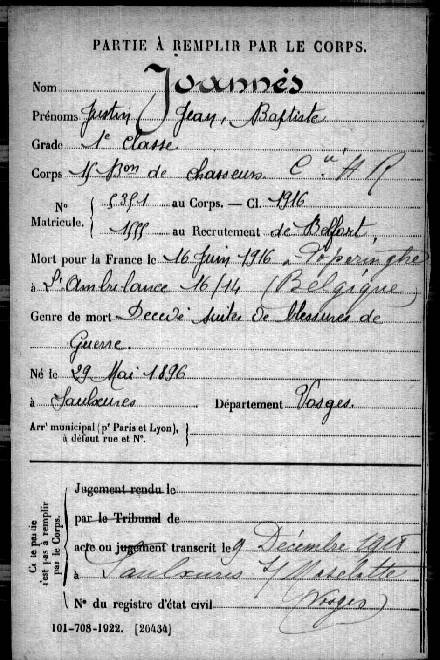 PARTIE À REMPLIR PAR LE CORPS.
Nom Joannès
Prénoms Justin, Jean, Baptiste
Grade 1e classe
Corps 15 Bon de chasseurs Cie H R
No Matricule. 5351 au Corps. — Cl. 1916
155 au Recrutement de Belfort,
Mort pour la France le 16 Juin 1916 à Poperinghe
à l'Ambulance 16/14 (Belgique)
Genre de mort Décédé suites de blessures de
Guerre.
Né le 29 Mai 1896
à Saulxures Département Vosges.
Arrt municipal (pr Paris et Lyon), à défaut rue et No.
Cette partie n'est pas à remplir par le Corps.
Jugement rendu le
par le Tribunal de
acte ou jugement transcrit le 9 Décembre
à Saulxures s/ Moselotte
(Vosges)
No du registre d'état civil
101-708-1922. [26434]